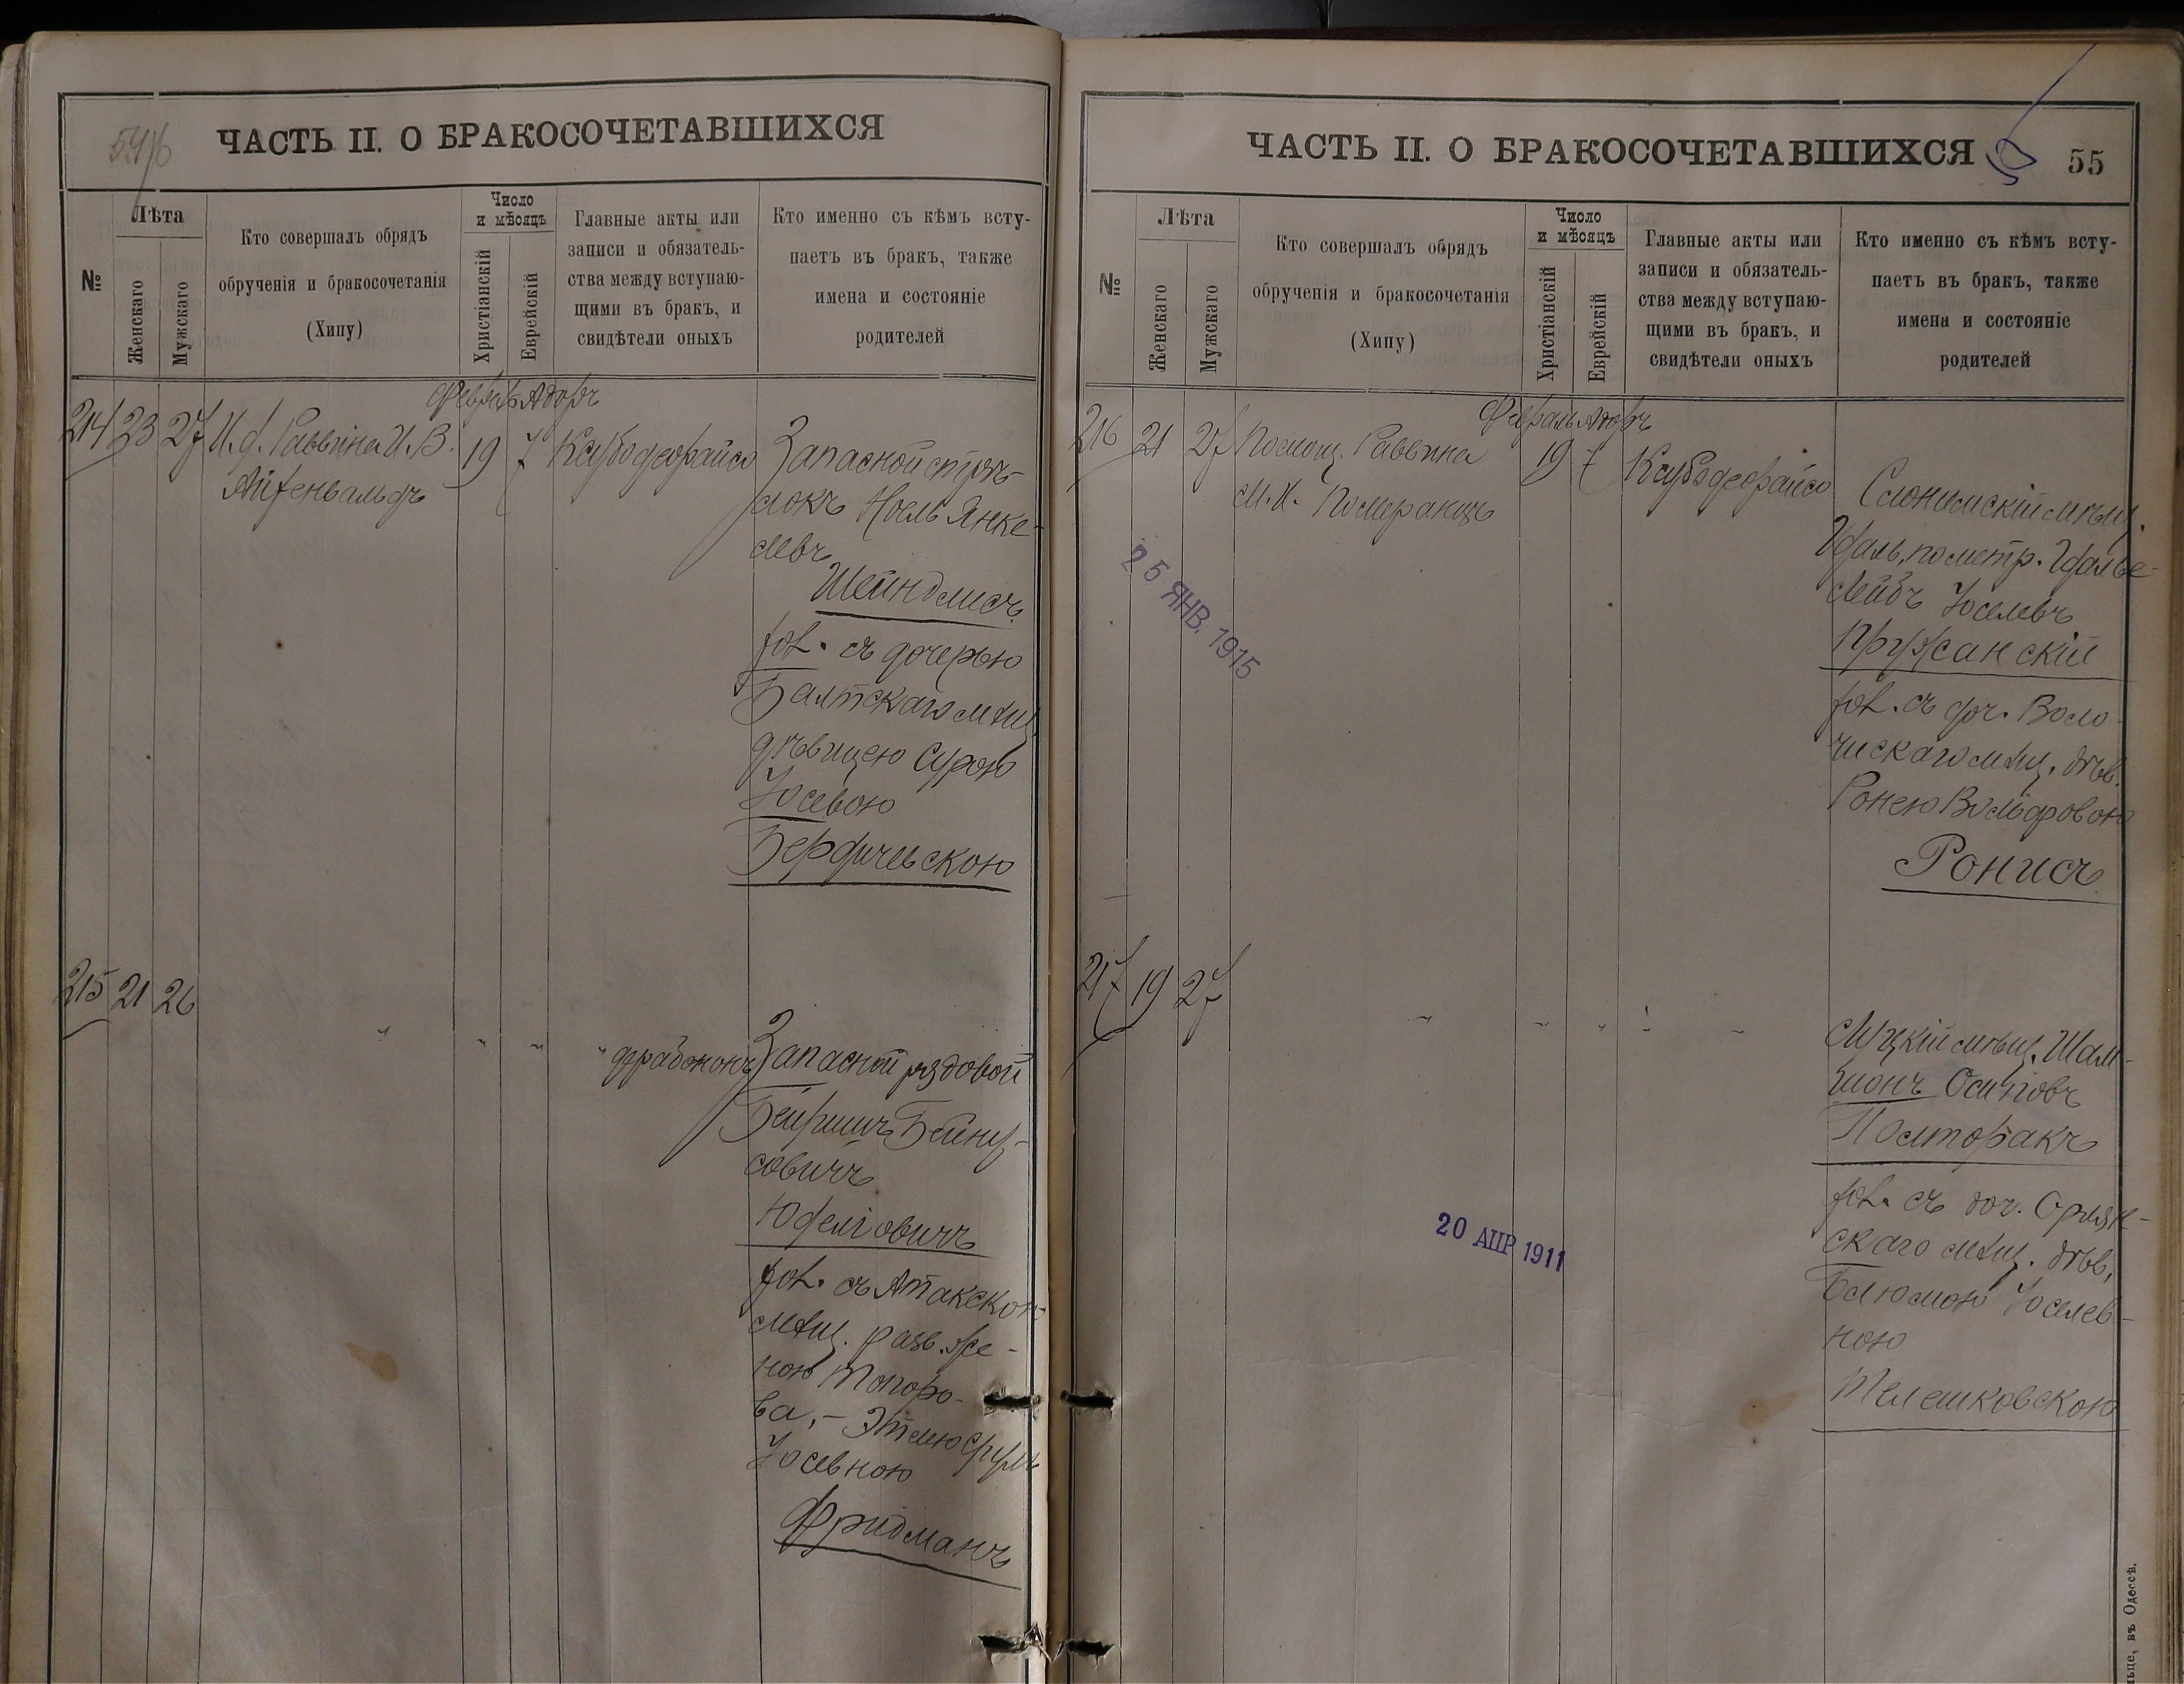 54/б
ЧАСТЬ II. О БРАКОСОЧЕТАВШИХСЯ
№
Лѣта
Женскаго
Мужскаго
Кто совершалъ обрядъ
обрученія и бракосочетанія
(Хипу)
Число
и мѣсяцъ
Христіанскій
Еврейскій
Главные акты или
записи и обязатель-
ства между вступаю-
щими въ бракъ, и
свидѣтели оныхъ
Кто именно съ кѣмъ всту-
паетъ въ бракъ, также
имена и состояніе
родителей
Февраль Адоръ
214 23 27 И. д. Раввина И. В. 19 7
Айзенвальдъ
Запасной стрѣ-
локъ Іосль Янке-
левъ
Шейндлисъ
хол. съ дочерью
Балтскаго мѣщ.
дѣвицею Сурою
Іосевою
Бердичевскою
215 21 26 " " " "
Запасной рядовой
Бейришъ Бейну-
совичъ
Юделіовичъ
хол. съ Атакскою
мѣщ. разв. же-
ною Топоро-
ва, - Этлею
Іосевною
Фридманъ
ЧАСТЬ II. О БРАКОСОЧЕТАВШИХСЯ
55
№
Лѣта
Женскаго
Мужскаго
Кто совершалъ обрядъ
обрученія и бракосочетанія
(Хипу)
Число
и мѣсяцъ
Христіанскій
Еврейскій
Главные акты или
записи и обязатель-
ства между вступаю-
щими въ бракъ, и
свидѣтели оныхъ
Кто именно съ кѣмъ всту-
паетъ въ бракъ, также
имена и состояніе
родителей
Февраль Адоръ
216 21 27 Помощ. Раввина 19 7
М. И. Померанцъ
25 ЯНВ. 1915
Слонимскій мѣщ.
Идаль, по метр. Идалье-
Лейбъ Іоселевъ
Пружанскій
хол. съ доч. Воло-
чискаго мѣщ. дѣв.
Ронею Вольфовою
Ронисъ
217 19 27 " " " " "
Луцкій мѣщ. Шам-
шонъ Осиповъ
Полторакъ
хол. съ доч.
скаго мѣщ. дѣв.
Блюмою Іоселев-
ною
Телешковскою
20 АПР 1911
въ Одессѣ.